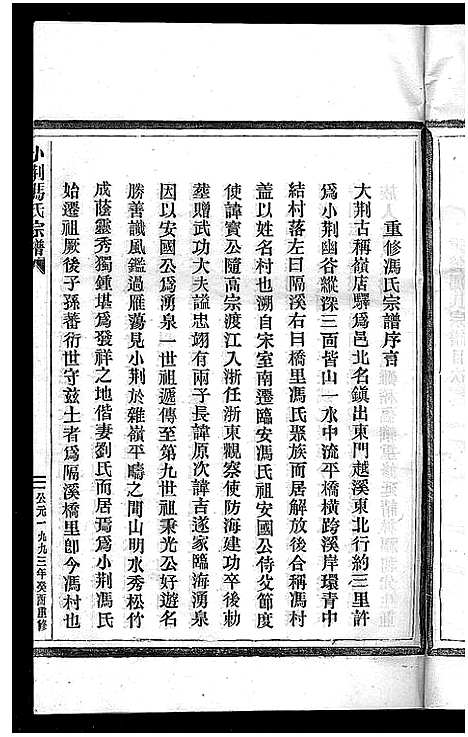 重修馮氏宗譜序言
大荆古稱嶺店驛爲邑北名鎭出東門越溪東北行約三里許
爲小荆幽谷縱深三面皆山一水中流平橋橫跨溪岸環靑中
結村落左曰隔溪右曰橋里馮氏聚族而居解放後合稱馮村
蓋以姓名村也溯自宋室南遷臨安馮氏祖安國公侍父節度
使諱實公隨高宗渡江入浙任浙東觀察使防海建功卒後勅
葬贈武功大夫謚忠翊有兩子長諱原次諱吉遂家臨海湧泉
因以安國公爲湧泉一世祖遞傳至第九世祖秉光公好遊名
勝善識風鑑過雁蕩見小荆於雞嶺平疇之間山明水秀松竹
成蔭靈秀獨鍾堪爲發祥之地偕妻劉氏而居焉爲小荆馮氏
始遷祖厥後子孫蕃衍世守兹土者爲隔溪橋里卽今馮村也
小荆馮氏宗譜
公元一九九三年癸酉重修